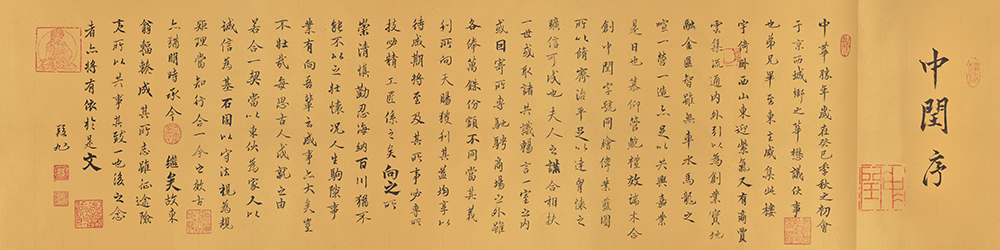 中閏序
中華稔年歲在癸巳季秋之初會
于京西城鄉之華懋議伙事
也弟兄畢至東主咸集此樓
宇倚卧西山東迎紫氣又有商賈
雲集流通内外引以為創業寶地
融金匯智雖無車水馬龍之
喧一營一造亦足以共興嘉業
是日也慕仰管鮑權效端木合
創中閏字號同繪偉業藍圖
所以脩齊治平足以達胷懷之
曠信可成也夫人之謀合相扶
一世或取諸共識暢言一室之内
或因寄所專馳騁商場之外雖
各俸萬殊份額不同當其義
利所向天賜獲利其益均享以
待威期將至及其所事必專所
技必精工匠係之矣向之所
崇清慎勤忍海納百川猶不
能不以之壯懷况人生駒隙事
業有向吾輩云成事亦大矣豈
不壯哉每思古人成就之由
若合一契當以東伙為家人以
誠信為基石固以守法規為規
矩理當知行合一今之效古
亦猶明時承今繼矣故東
翁輻輳成其所志雖征途險
支所以共事其致一也後之念
者亦將有依於是文